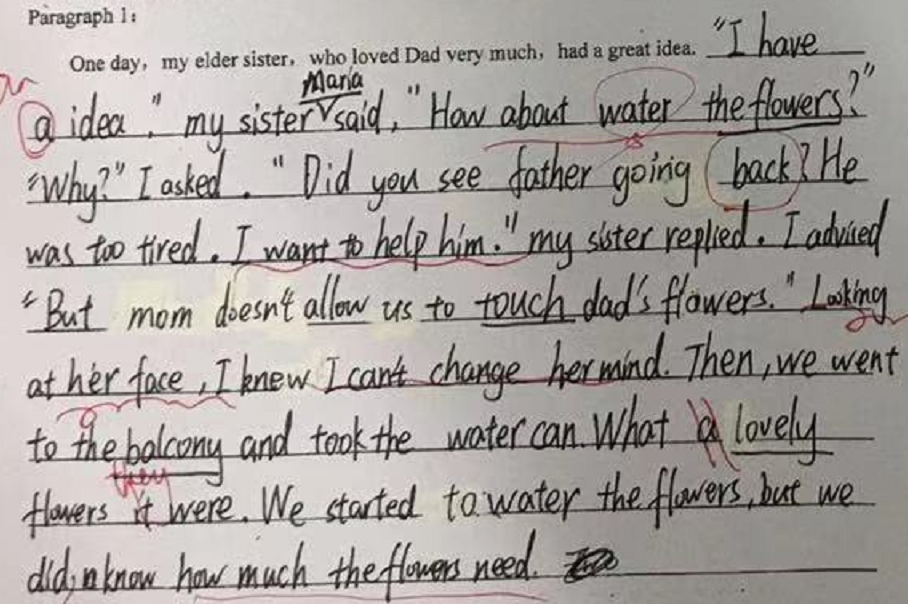 Paragraph 1:
One day, my elder sister, who loved Dad very much, had a great idea. "I have
an
Maria
a idea," my sister said, "How about water the flowers?"
"Why?" I asked. "Did you see father going back? He
was too tired. I want to help him." my sister replied. I advised
"But mom doesn't allow us to touch dad's flowers." Looking
at her face, I knew I can't change her mind. Then, we went
to the balcony and took the water can. What a lovely
they
flowers it were. We started to water the flowers, but we
did,n know how much the flowers need.